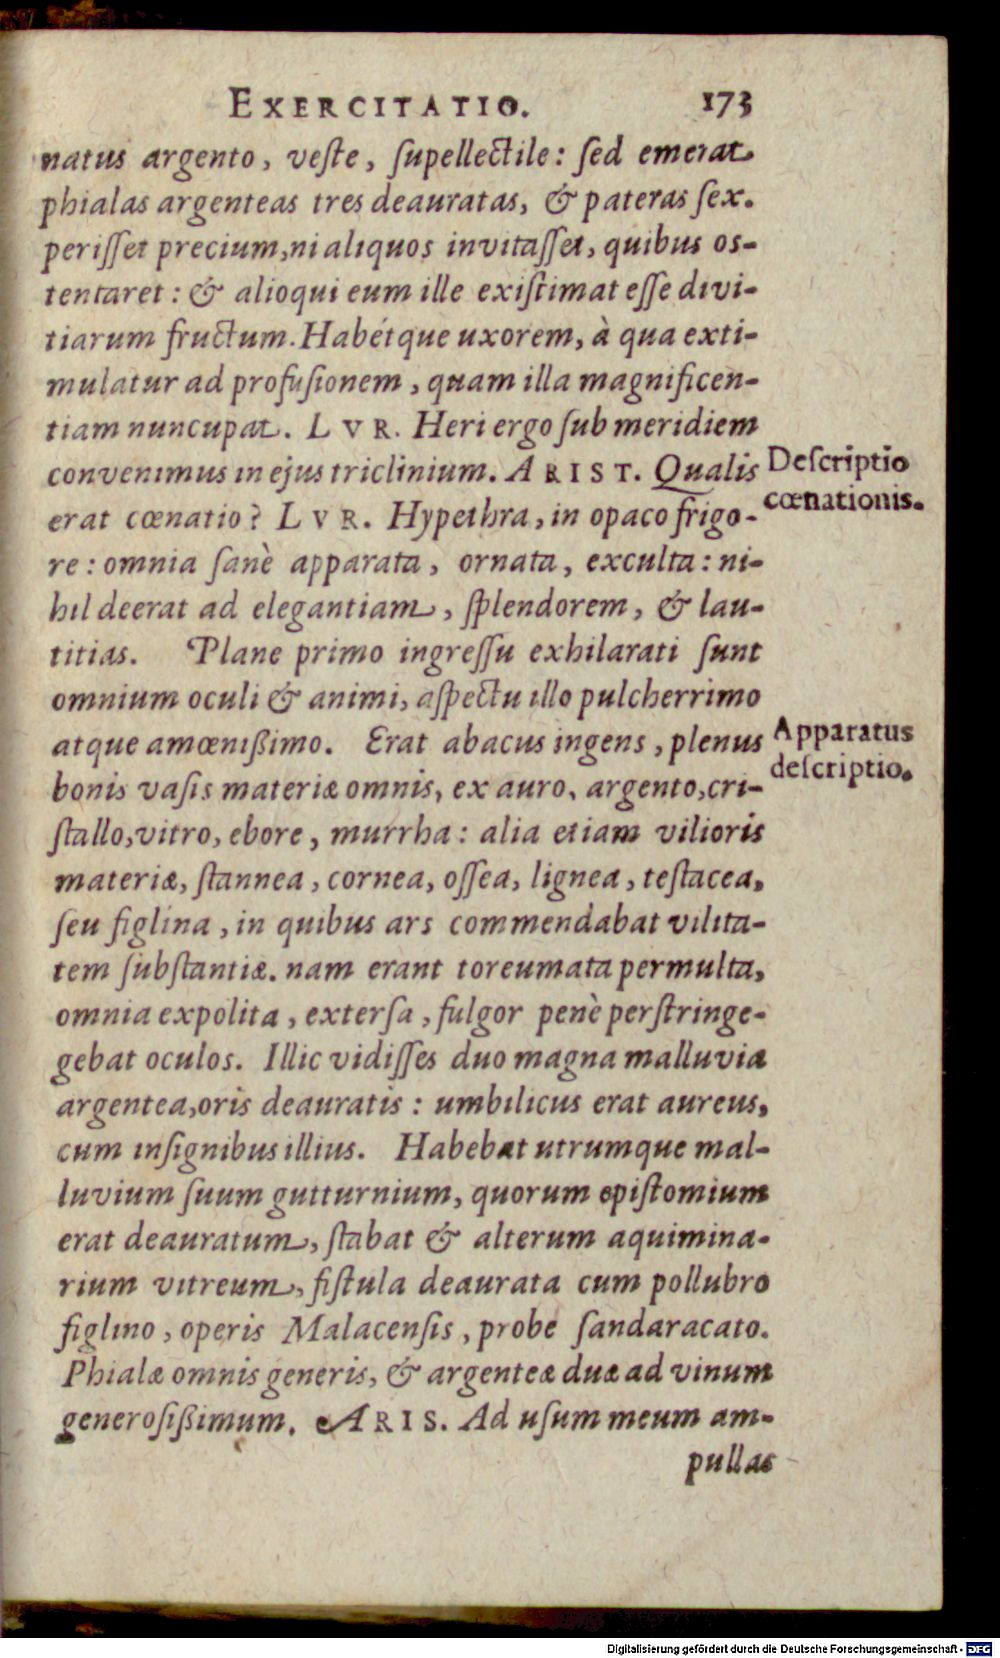 EXERCITATIO. 173
natus argento, veſte, ſupellectile: ſed emerat
phialas argenteas tres deauratas, & pateras ſex.
periſſet precium, ni aliquos invitaſſet, quibus os-
tentaret: & alioqui eum ille exiſtimat eſſe divi-
tiarum fructum. Habétque uxorem, à qua exti-
mulatur ad profuſionem, quam illa magnificen-
tiam nuncupat. LVR. Heri ergo ſub meridiem
convenimus in ejus triclinium. ARIST. Qualis
Deſcriptio
cœnationis.
erat cœnatio? LVR. Hypethra, in opaco frigo-
re: omnia ſanè apparata, ornata, exculta: ni-
hil deerat ad elegantiam, ſplendorem, & lau-
titias. Plane primo ingreſſu exhilarati ſunt
omnium oculi & animi, aſpectu illo pulcherrimo
atque amœnißimo. Erat abacus ingens, plenus
Apparatus
deſcriptio.
bonis vaſis materiæ omnis, ex auro, argento, cri-
ſtallo, vitro, ebore, murrha: alia etiam vilioris
materiæ, ſtannea, cornea, oſſea, lignea, teſtacea,
ſeu figlina, in quibus ars commendabat vilita-
tem ſubſtantiæ. nam erant toreumata permulta,
omnia expolita, exterſa, fulgor penè perſtringe-
gebat oculos. Illic vidiſſes duo magna malluvia
argentea, oris deauratis: umbilicus erat aureus,
cum inſignibus illius. Habebat utrumque mal-
luvium ſuum gutturnium, quorum epiſtomium
erat deauratum, ſtabat & alterum aquimina-
rium vitreum, fiſtula deaurata cum pollubro
figlino, operis Malacenſis, probe ſandaracato.
Phialæ omnis generis, & argenteæ duæ ad vinum
generoſißimum. ARIS. Ad uſum meum am-
pullas
Digitalisierung gefördert durch die Deutsche Forschungsgemeinschaft - DFG